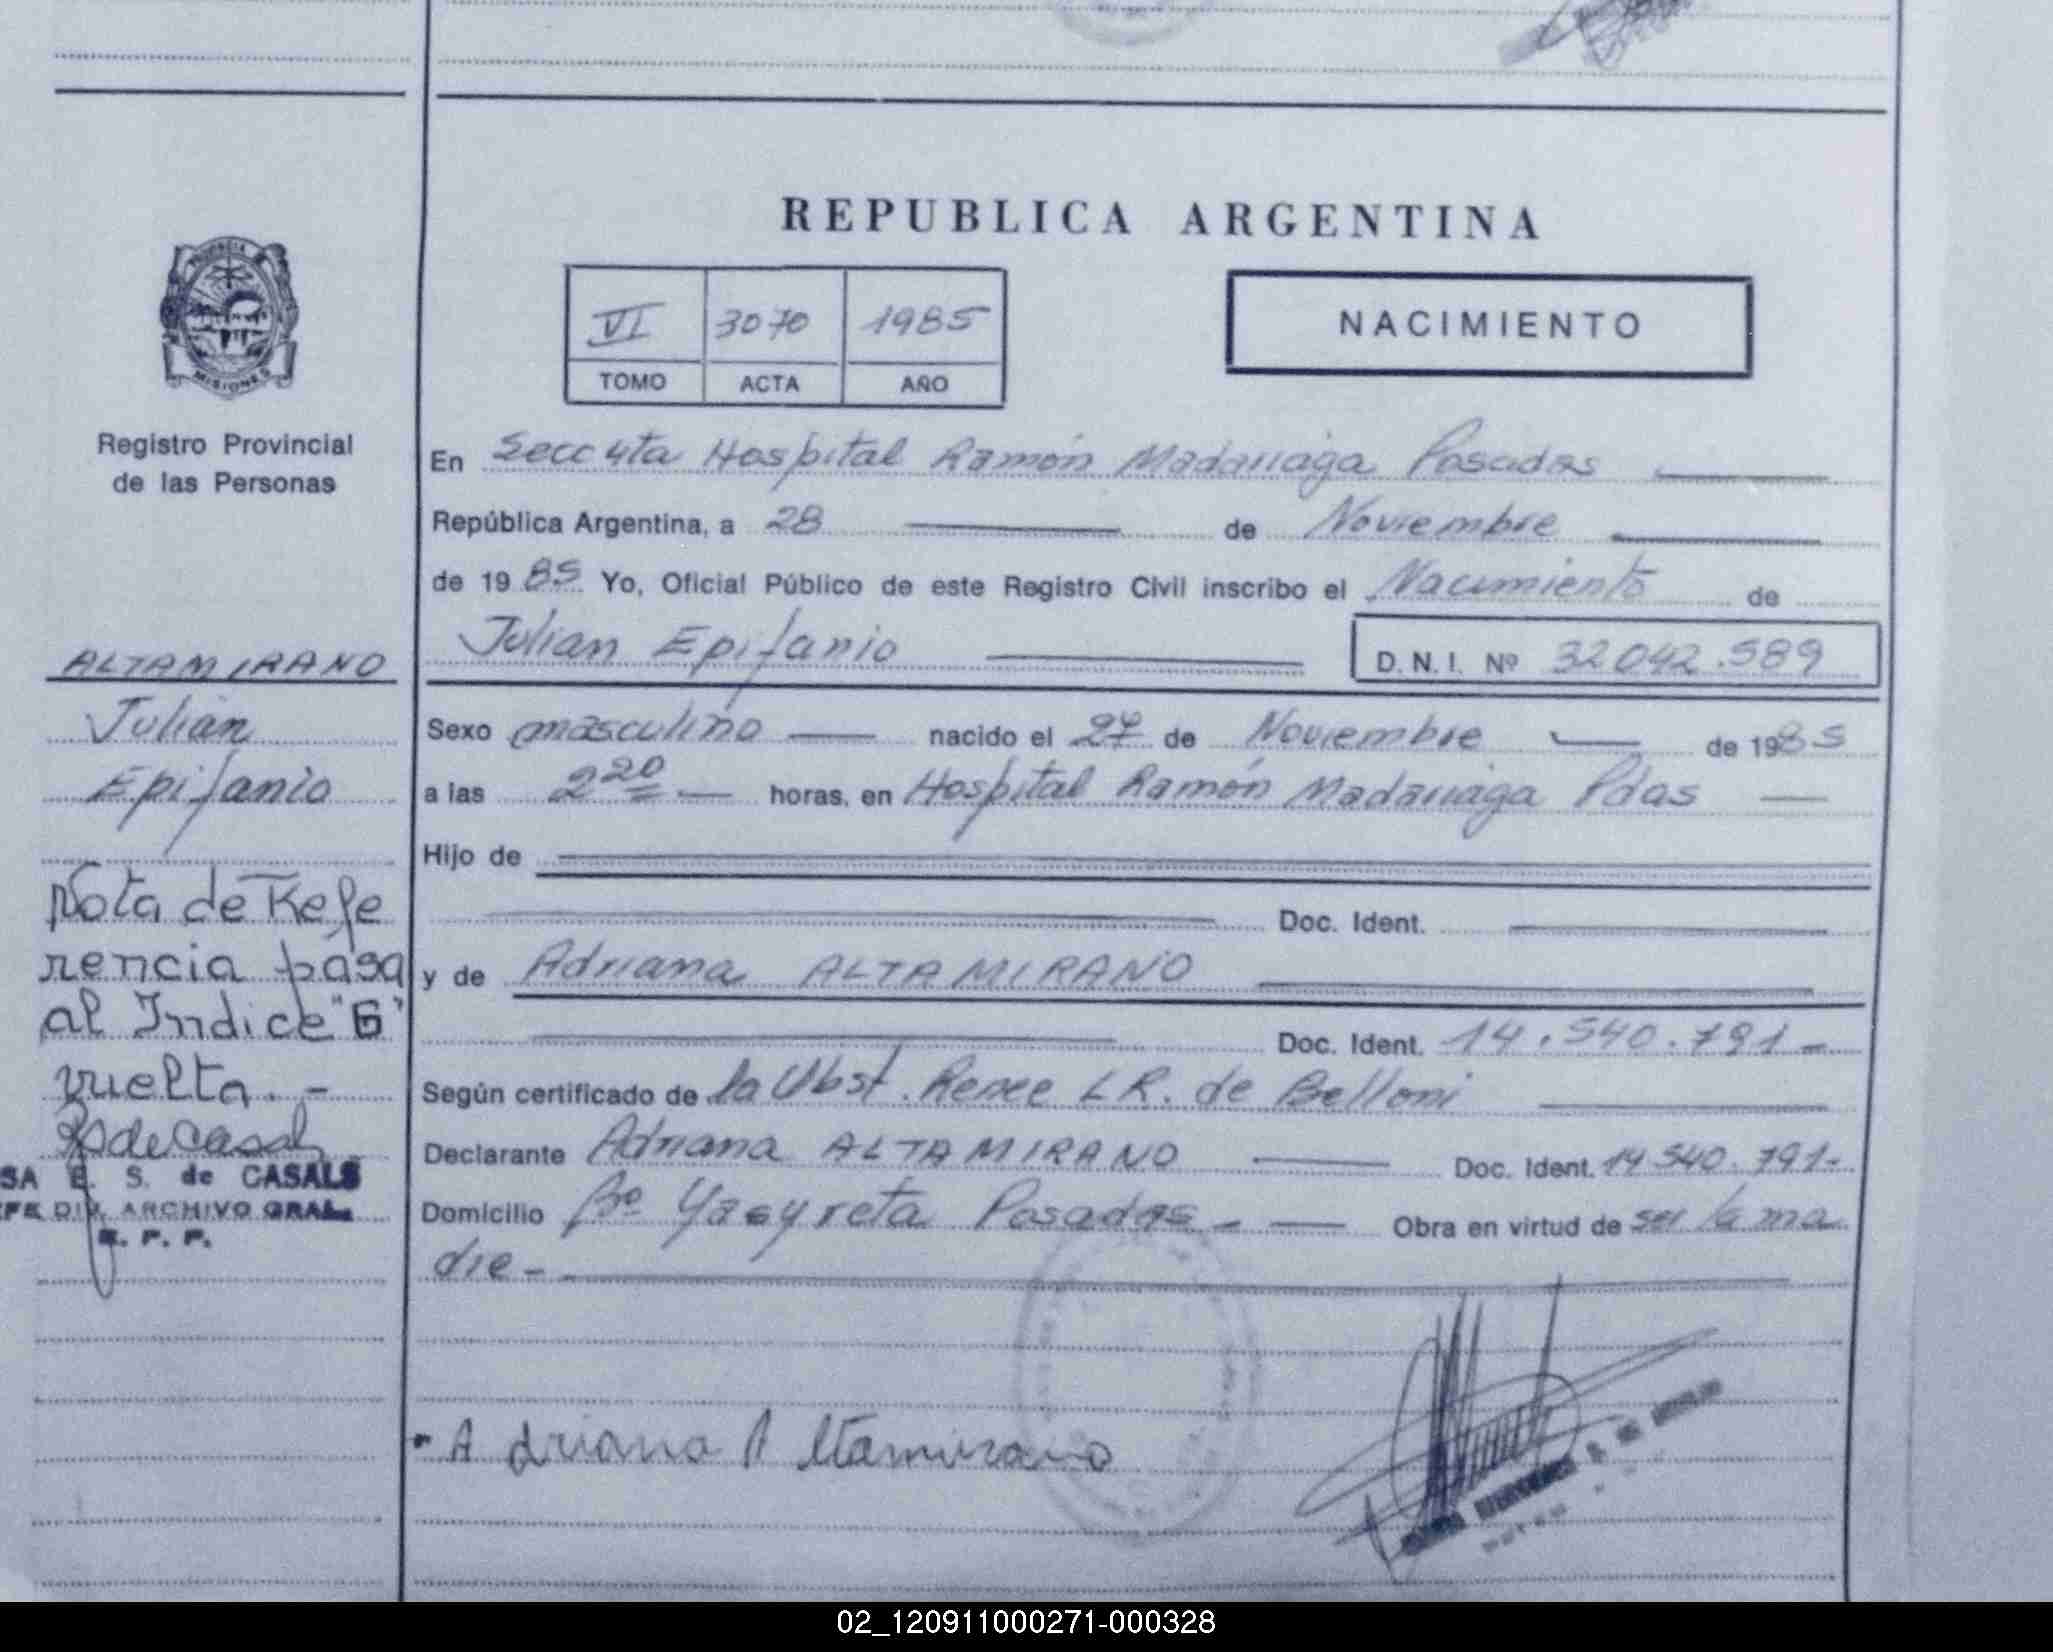 REPUBLICA ARGENTINA
PROVINCIA
MISIONES
Registro Provincial
de las Personas
VI 3070 1985
TOMO ACTA AÑO
NACIMIENTO
En Secc 4ta Hospital Ramón Madariaga Posadas
República Argentina, a 28 de Noviembre
de 1985 Yo, Oficial Público de este Registro Civil inscribo el Nacimiento de
Julian Epifanio D.N.I. Nº 32042.589
ALTAMIRANO
Julián
Epifanio
Nota de Refe
rencia pasa
al Indice "G"
vuelta. -
SA E. S. de CASALS
FE DIV. ARCHIVO GRAL.
R. P. P.
Sexo masculino nacido el 27 de Noviembre de 1985
a las 2 20 horas, en Hospital Ramón Madariaga Pdas
Hijo de
Doc. Ident.
y de Adriana ALTAMIRANO
Doc. Ident. 14.540.791-
Según certificado de la Obst. Renee L R. de Belloni
Declarante Adriana ALTAMIRANO Doc. Ident. 14 540. 791-
Domicilio Bº Yacyreta Posadas - Obra en virtud de ser la ma
dre -
Adriana Altamirano
02_120911000271-000328